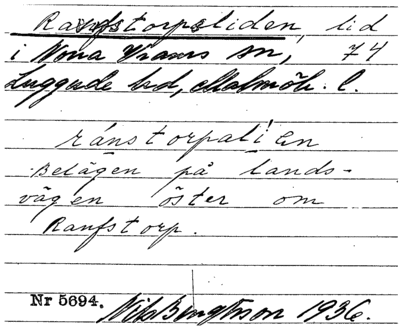 Ranfstorpsliden, lid
i Norra Vrams sn, 74
Luggude hd, Malmöh. l.
ránstorpaliɛn
Belägen på lands-
vägen öster om
Ranfstorp.
Nr 5694. Nils Bengtsson 1936.